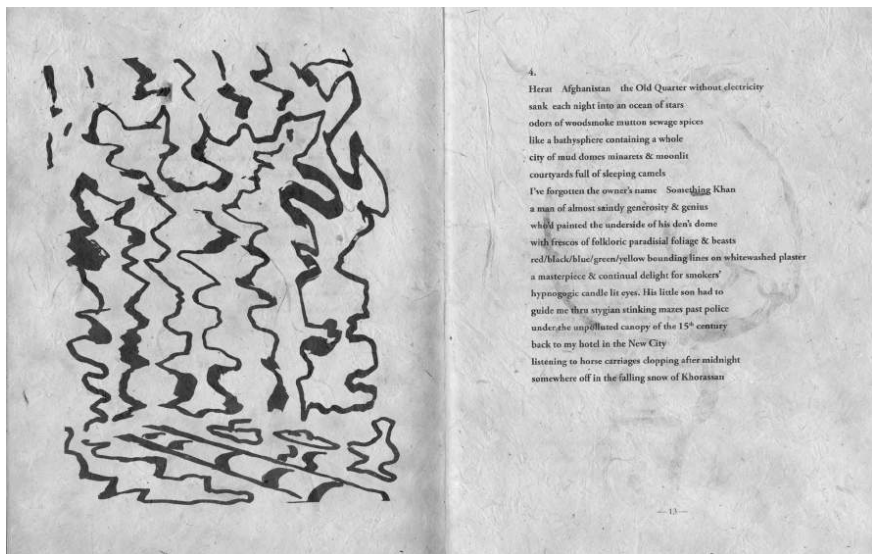 4.
Herat Afghanistan the Old Quarter without electricity
sank each night into an ocean of stars
odors of woodsmoke mutton sewage spices
like a bathysphere containing a whole
city of mud domes minarets & moonlit
courtyards full of sleeping camels
I've forgotten the owner's name Something Khan
a man of almost saintly generosity & genius
who'd painted the underside of his den's dome
with frescos of folkloric paradisial foliage & beasts
red/black/blue/green/yellow bounding lines on whitewashed plaster
a masterpiece & continual delight for smokers'
hypnogogic candle lit eyes. His little son had to
guide me thru stygian stinking mazes past police
under the unpolluted canopy of the 15th century
back to my hotel in the New City
listening to horse carriages clopping after midnight
somewhere off in the falling snow of Khorassan
— 13 —